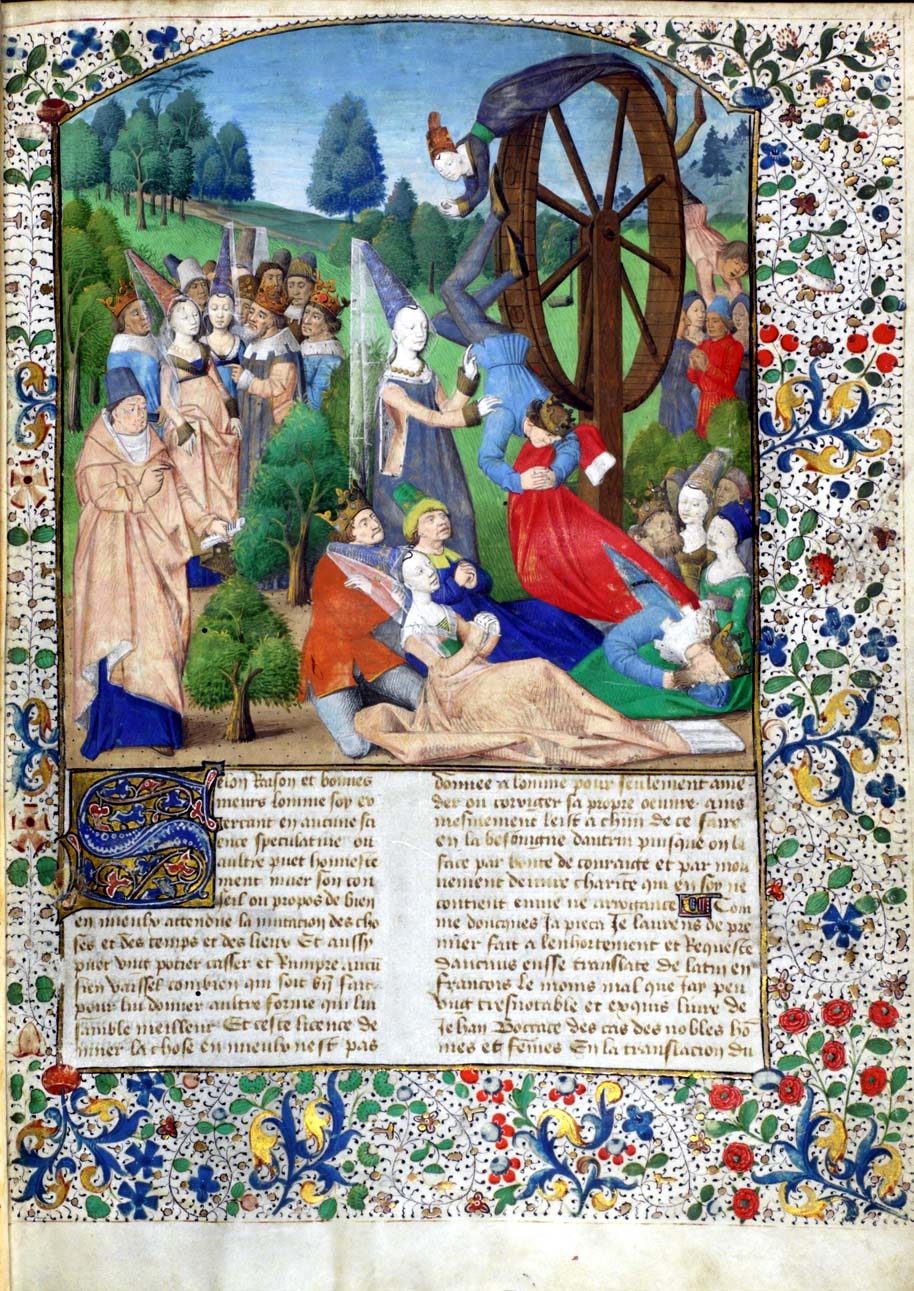 Selon Raison et bonnes
meurs lomme soy ex
ercant en aucune sci
ence speculative ou
aultre puet honneste
ment muer son con
seil ou propos de bien
en mieulx attendue la mutation des cho
ses et des temps et des lieux Et aussy
puet ung potier casser et Rumpre aucu
sien vaissel combien quil soit bn fait
pour lui donner aultre forme qui lui
samble meilleur Et ceste licence de
muer la chose en mieulx nest pas
donnee a lomme pour seulement ame
der ou corriger sa propre oeuvre ains
mesmement leist a chun de ce faire
en la besoingne dautrui puisque on la
face par bonte de couraige et par mou
vement de vraie charite qui en soy ne
contient envie ne arrogance Com
me doncques Ja pieca Je laurens de pre
mier fait a lenhortement et Requeste
daucuns eusse translate de latin en
francois le moins mal que Jay peu
ung tresnotable et exquis livre de
Jehan Boccace des cas des nobles ho
mes et femes En la translacion du